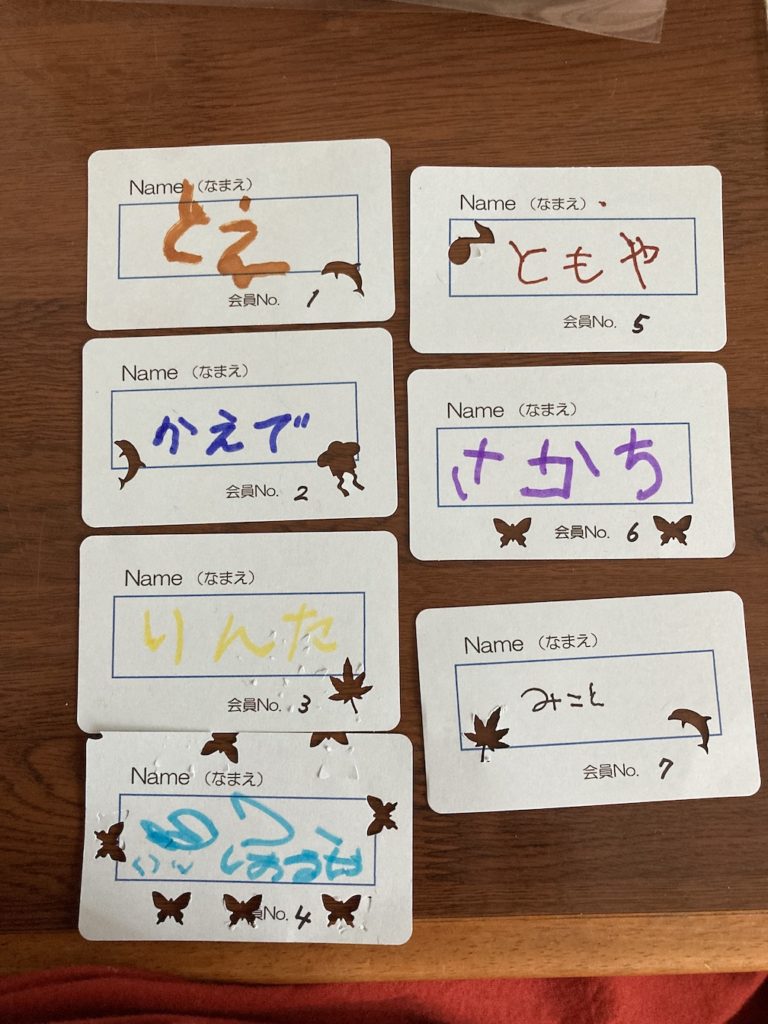 Name（なまえ）
とえ
会員No. 1
Name（なまえ）
かえで
会員No. 2
Name（なまえ）
りんた
会員No. 3
Name（なまえ）
員No. 4
Name（なまえ）
ともや
会員No. 5
Name（なまえ）
さかち
会員No. 6
Name（なまえ）
みこと
会員No. 7